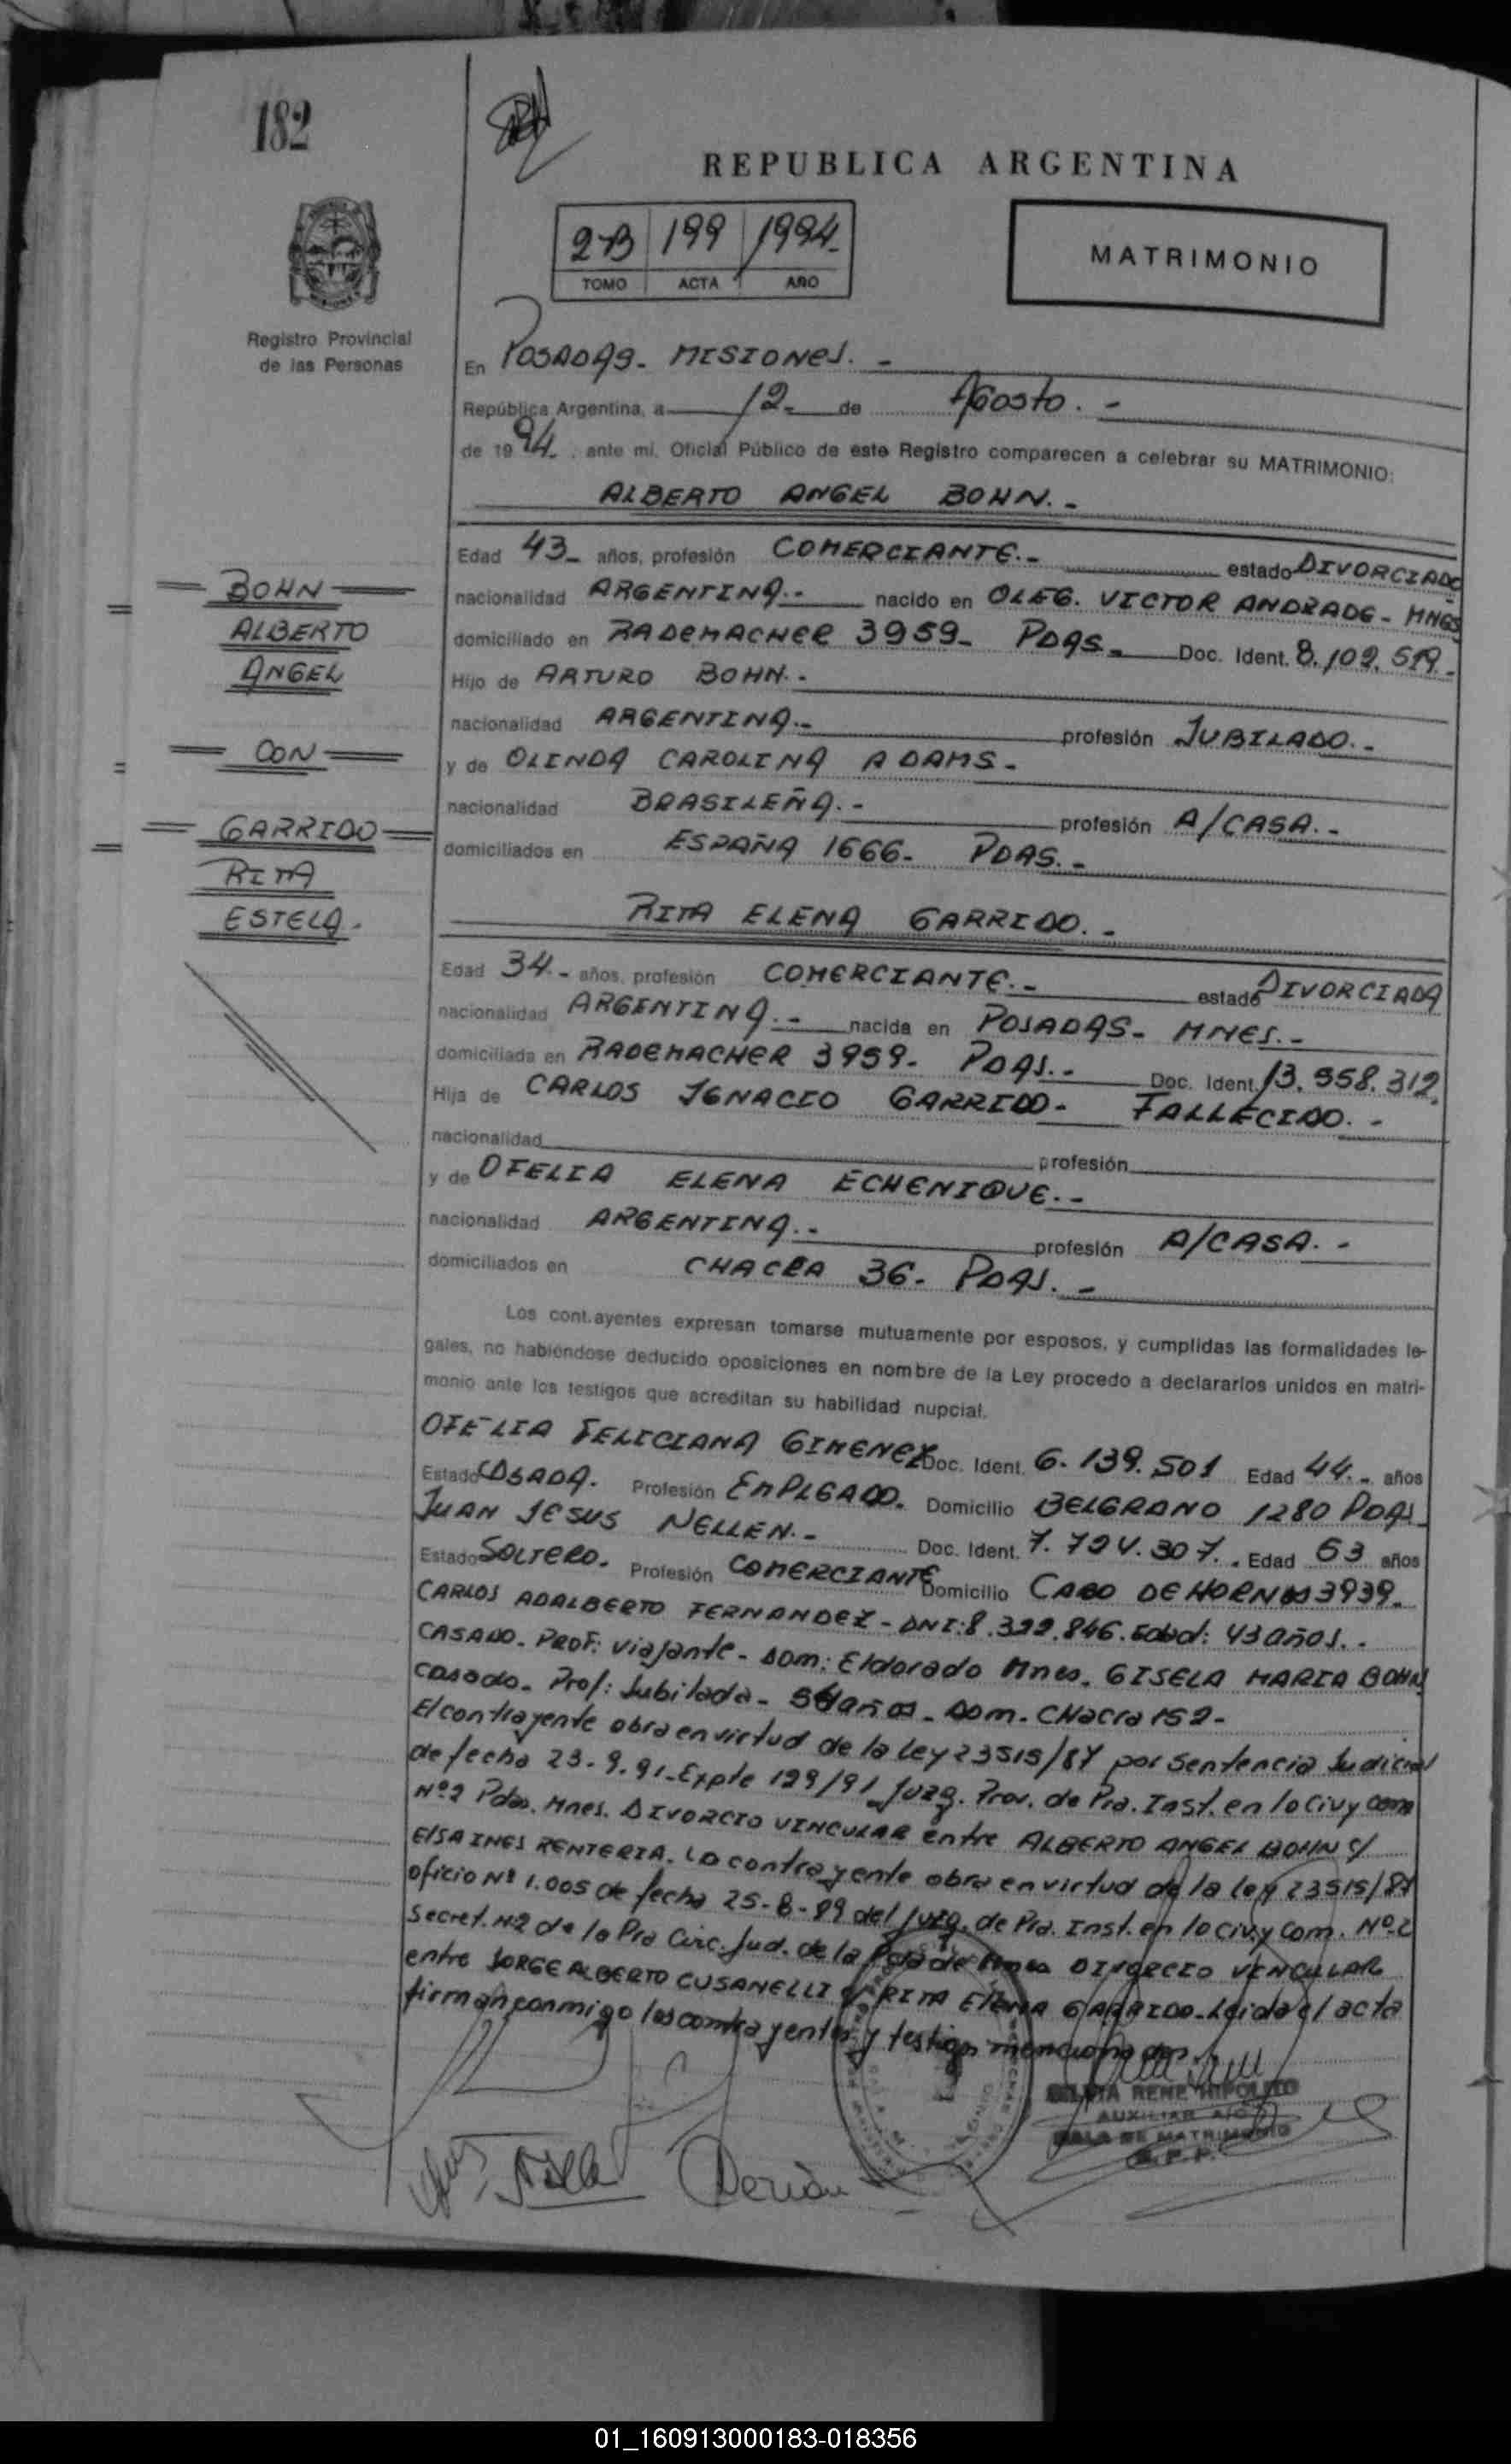 182
REPUBLICA ARGENTINA
2-B 199 1994.-
TOMO ACTA AÑO
MATRIMONIO
Registro Provincial
de las Personas
En POSADAS- MISIONES.-
República Argentina, a 12- de AGOSTO.-
de 1994.-, ante mi, Oficial Público de este Registro comparecen a celebrar su MATRIMONIO:
ALBERTO ANGEL BOHN.-
Edad 43- años, profesión COMERCIANTE.- estado DIVORCIADO
nacionalidad ARGENTINA.- nacido en OLEG. VICTOR ANDRADE- MNES
domiciliado en RADEMACHER 3959- PDAS.- Doc. Ident. 8.109.519.-
Hijo de ARTURO BOHN.-
nacionalidad ARGENTINA.- profesión JUBILADO.-
y de OLINDA CAROLINA ADAMS-
nacionalidad BRASILEÑA.- profesión A/CASA.-
domiciliados en ESPAÑA 1666- PDAS.-
BOHN
ALBERTO
ANGEL
CON
GARRIDO
RITA
ESTELA.
RITA ELENA GARRIDO.-
Edad 34.- años, profesión COMERCIANTE.- estado DIVORCIADA
nacionalidad ARGENTINA.- nacida en POSADAS- MNES.-
domiciliada en RADEMACHER 3959- PDAS.- Doc. Ident. 13.558.312.
Hija de CARLOS IGNACIO GARRIDO- FALLECIDO.-
nacionalidad profesión
y de OFELIA ELENA ECHENIQUE.-
nacionalidad ARGENTINA.- profesión A/CASA.-
domiciliados en CHACRA 36- PDAS.-
Los contrayentes expresan tomarse mutuamente por esposos, y cumplidas las formalidades le-
gales, no habiéndose deducido oposiciones en nombre de la Ley procedo a declararlos unidos en matri-
monio ante los testigos que acreditan su habilidad nupcial.
OFELIA FELICIANA GIMENEZ Doc. Ident. 6.139.501 Edad 44.- años
Estado CASADA. Profesión EMPLEADO. Domicilio BELGRANO 1280 PDAS
JUAN JESUS NELLEN.- Doc. Ident. 7. 307. Edad 53 años
Estado SOLTERO. Profesión COMERCIANTE Domicilio CABO DE HORNOS 3939.
CARLOS ADALBERTO FERNANDEZ- DNI: 8.399.846. Edad: 43 años.-
CASADO- PROF: viajante- Dom: Eldorado Mnes. GISELA MARIA BOHN
casada- Prof: Jubilada- años- Dom- CHacra 159-
El contrayente obra en virtud de la Ley 23515/87 por sentencia Judicial
de fecha 23-9-91-Expte 199/91 Juzg. Prov. de Pra. Inst. en lo Civ y Com
Nº2 Pdas. Mnes. DIVORCIO VINCULAR entre ALBERTO ANGEL BOHN c/
ELSA INES RENTERIA. La contrayente obra en virtud de la ley 23515/87
oficio Nº 1.005 de fecha 25-8-89 del Juzg. de Pra. Inst. en lo Civ. y Com. Nº2
Secret. Nº2 de la Pra Circ. Jud. de la Pcia de Mnes DIVORCIO VINCULAR
entre JORGE ALBERTO CUSANELLI c/ RITA ELENA GARRIDO- Leida el acta
firman conmigo los contrayentes y testigos mencionados.-
SILVIA RENE HIPOLITO
AUXILIAR A/C
SALA DE MATRIMONIO
R.P.P.
01_160913000183-018356